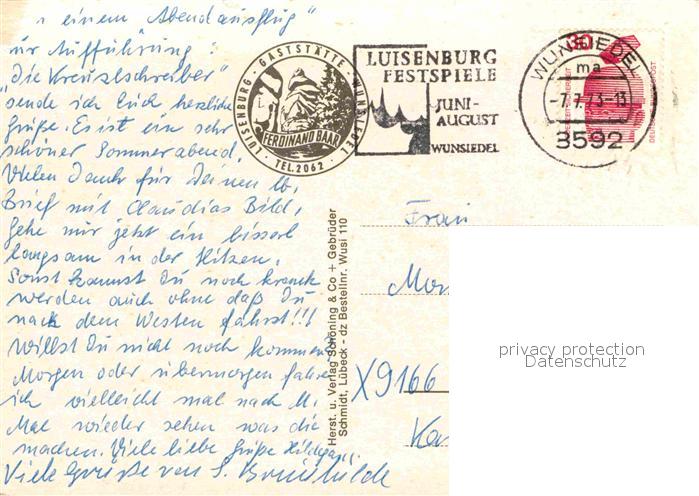 einem Abendausflug"
zur Aufführung:
"Die Kreuzlschreiber"
sende ich Euch herzliche
Grüße. Es ist ein sehr
schöner Sommerabend.
Vielen Dank für Deinen lb.
Brief mit Claudias Bild,
Gehe mir jetzt ein bisserl
langsam in der Hitzen.
Sonst kannst Du noch krank
werden auch ohne daß Du
nach dem Westen fährst!!!
Willst Du nicht noch kommen?
Morgen oder übermorgen fahre
ich vielleicht mal nach M.
Mal wieder sehen was die
machen. Viele liebe Grüße
Viele Grüße von S. Brunhilde
LUISENBURG · GASTSTÄTTE · WUNSIEDEL
FERDINAND BAAR
· TEL. 2062 ·
LUISENBURG
FESTSPIELE
JUNI-
AUGUST
WUNSIEDEL
WUNSIEDEL
ma
-7.7.73-13
3592
30
Herst. u. Verlag Schöning & Co + Gebrüder
Schmidt, Lübeck - dz Bestellnr. Wusi 110
Frau
X9166
privacy protection
Datenschutz